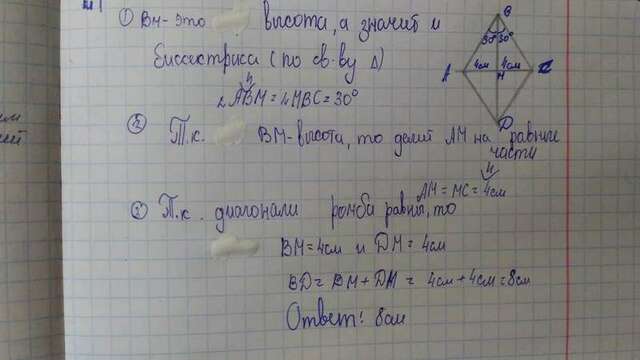 №1
① ВМ - это высота, а значит и
биссектриса (по св-ву Δ)
∠ABM = ∠MBC = 30°
② Т.к. ВМ - высота, то делит АМ на равные
части
AM = MC = 4см
③ Т.к. диагонали ромба равны, то
BM = 4см и DM = 4см
BD = BM + DM = 4см + 4см = 8см
Ответ: 8см
B
30° 30°
A 4см 4см C
M
D